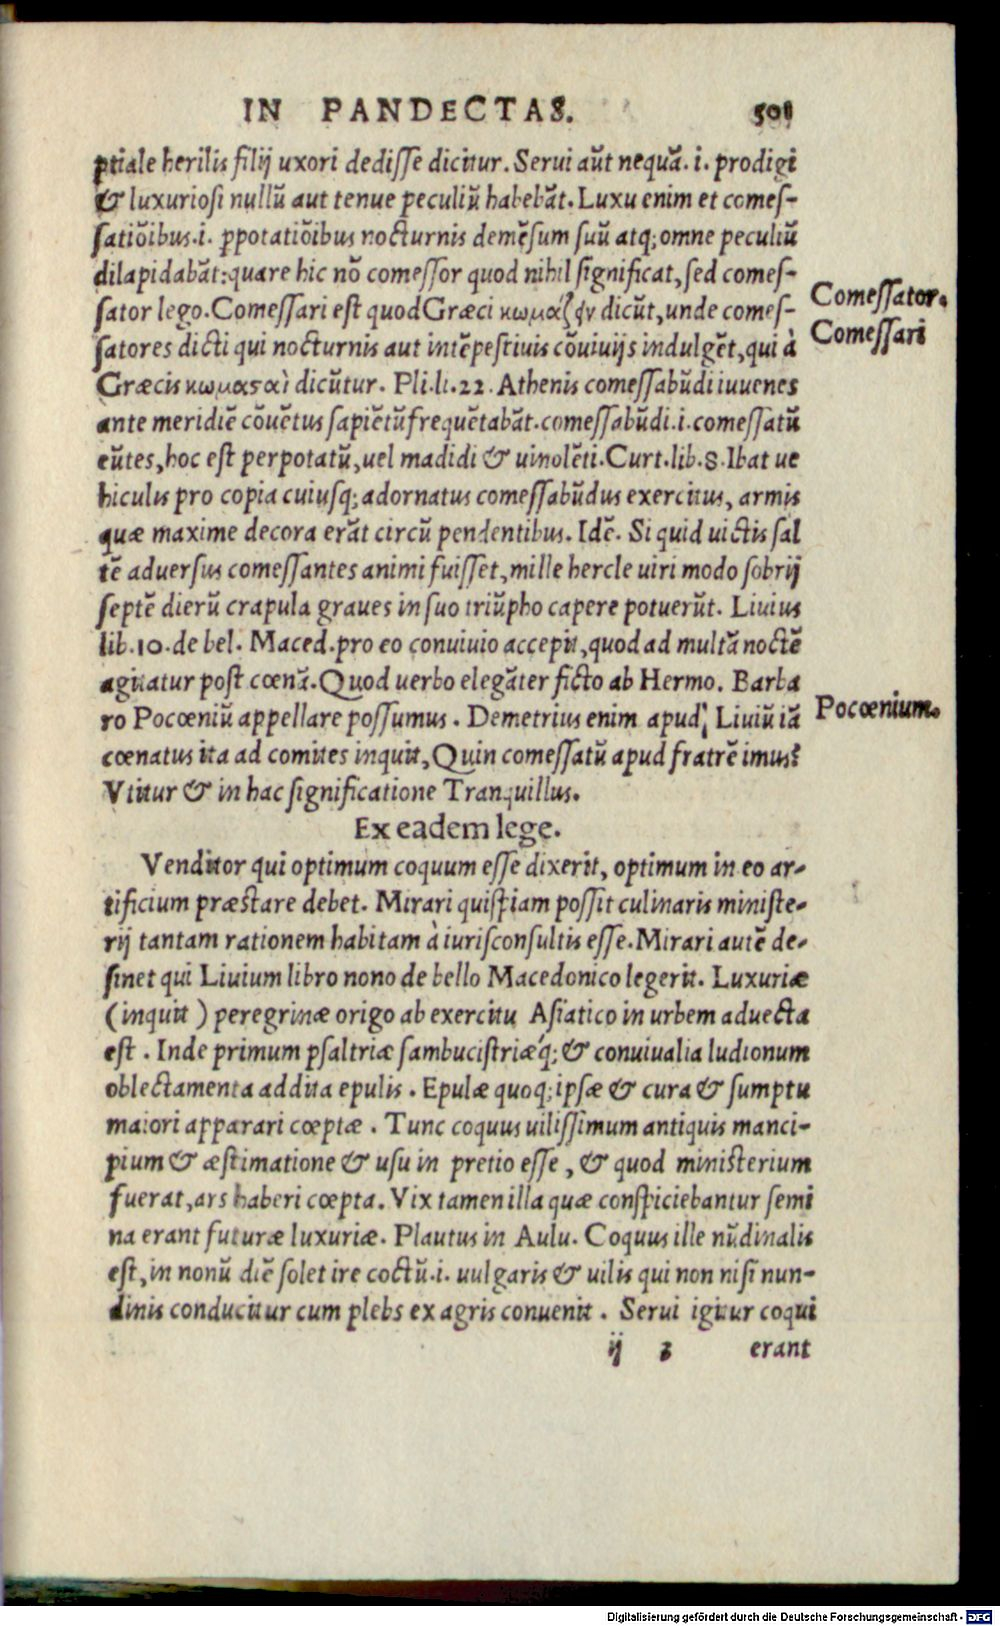 IN PANDECTAS. 501
ptiale herilis filij uxori dedisse dicitur. Serui aũt nequã. i. prodigi
& luxuriosi nullũ aut tenue peculiũ habebãt. Luxu enim et comes-
satiõibus. i. ꝑpotatiõibus nocturnis demẽsum suũ atq; omne peculiũ
dilapidabãt: quare hic nõ comessor quod nihil significat, sed comes-
sator lego. Comessari est quod Græci κωμάζειν dicũt, unde comes-
satores dicti qui nocturnis aut intẽpestiuis cõuiuijs indulgẽt, qui à
Græcis κωμασαὶ dicũtur. Pli. li. 22. Athenis comessabũdi iuuenes
ante meridiẽ cõuẽtus sapiẽtũ frequẽtabãt. comessabũdi. i. comessatũ
eũtes, hoc est perpotatũ, uel madidi & uinolẽti. Curt. lib. 8. Ibat ue
hiculis pro copia cuiusq; adornatus comessabũdus exercitus, armis
quæ maxime decora erãt circũ pendentibus. Idẽ. Si quid uictis sal
tẽ aduersus comessantes animi fuisset, mille hercle uiri modo sobrij
septẽ dierũ crapula graues in suo triũpho capere potuerũt. Liuius
lib. 10. de bel. Maced. pro eo conuiuio accepit, quod ad multã noctẽ
agitatur post cœnã. Quod uerbo elegãter ficto ab Hermo. Barba
ro Pocœniũ appellare possumus. Demetrius enim apud Liuiũ iã
cœnatus ita ad comites inquit, Quin comessatũ apud fratrẽ imus?
Vtitur & in hac significatione Tranquillus.
Comessator.
Comessari
Pocœnium.
Ex eadem lege.
Venditor qui optimum coquum esse dixerit, optimum in eo ar-
tificium præstare debet. Mirari quispiam possit culinaris ministe-
rij tantam rationem habitam à iurisconsultis esse. Mirari autẽ de-
sinet qui Liuium libro nono de bello Macedonico legerit. Luxuriæ
(inquit) peregrinæ origo ab exercitu Asiatico in urbem aduecta
est. Inde primum psaltriæ sambucistriæq́; & conuiualia ludionum
oblectamenta addita epulis. Epulæ quoq; ipsæ & cura & sumptu
maiori apparari cœptæ. Tunc coquus uilissimum antiquis manci-
pium & æstimatione & usu in pretio esse, & quod ministerium
fuerat, ars haberi cœpta. Vix tamen illa quæ conspiciebantur semi
na erant futuræ luxuriæ. Plautus in Aulu. Coquus ille nũdinalis
est, in nonũ diẽ solet ire coctũ. i. uulgaris & uilis qui non nisi nun-
dinis conducitur cum plebs ex agris conuenit. Serui igitur coqui
ij 3 erant
Digitalisierung gefördert durch die Deutsche Forschungsgemeinschaft - DFG